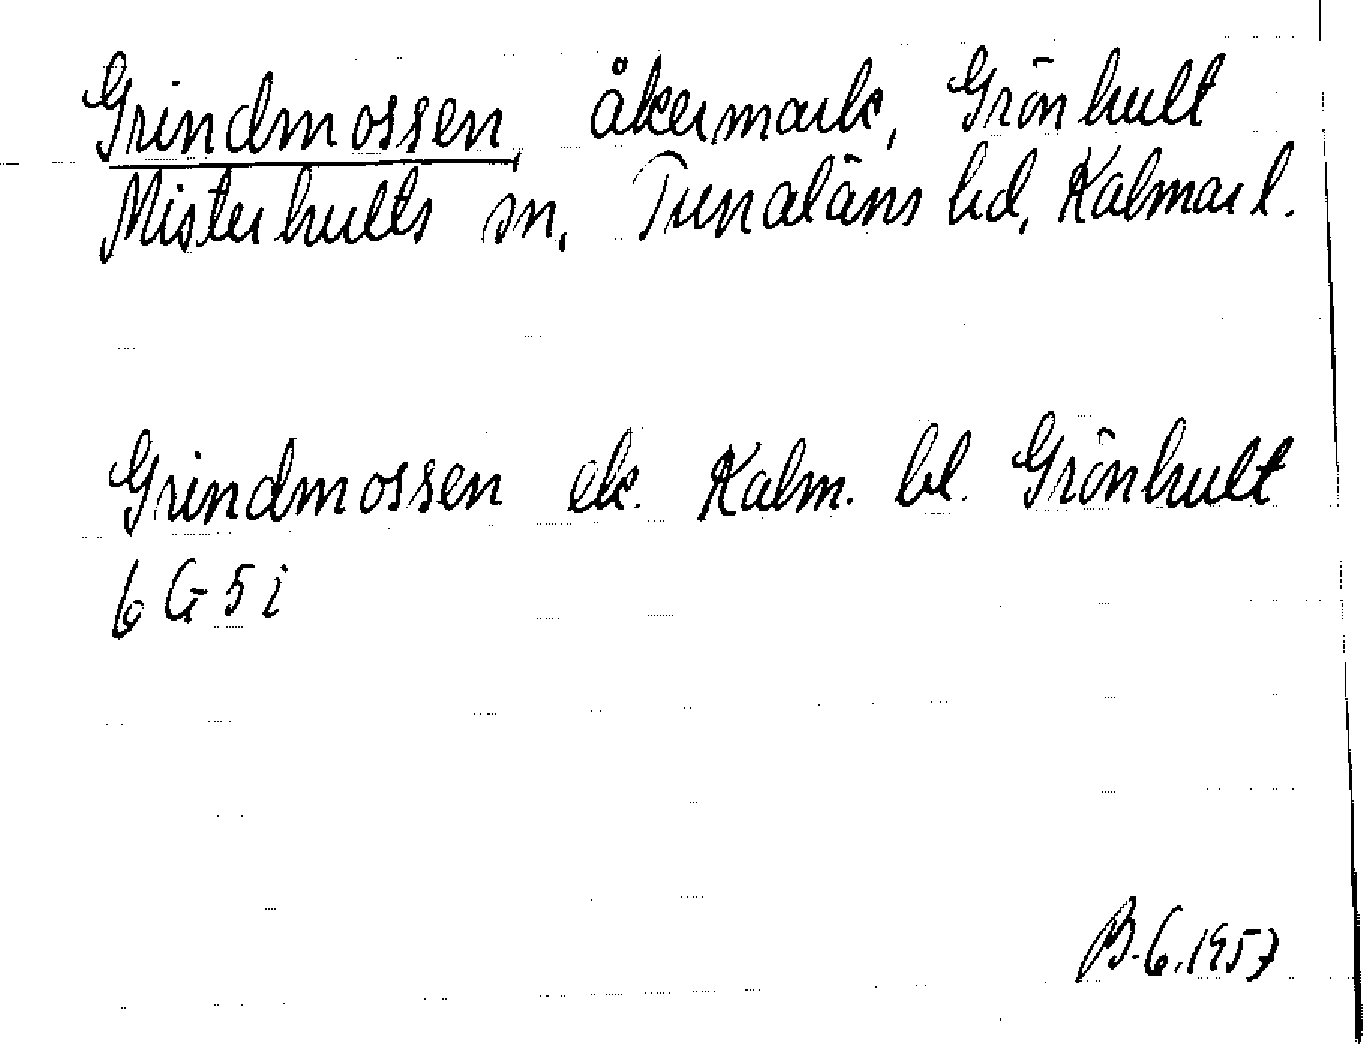 Grindmossen, åkermark, Grönhult
Misterhults sn, Tunaläns hd, Kalmar l.
Grindmossen ek. Kalm. bl. Grönhult
6 G 5 i
B.G. 1957